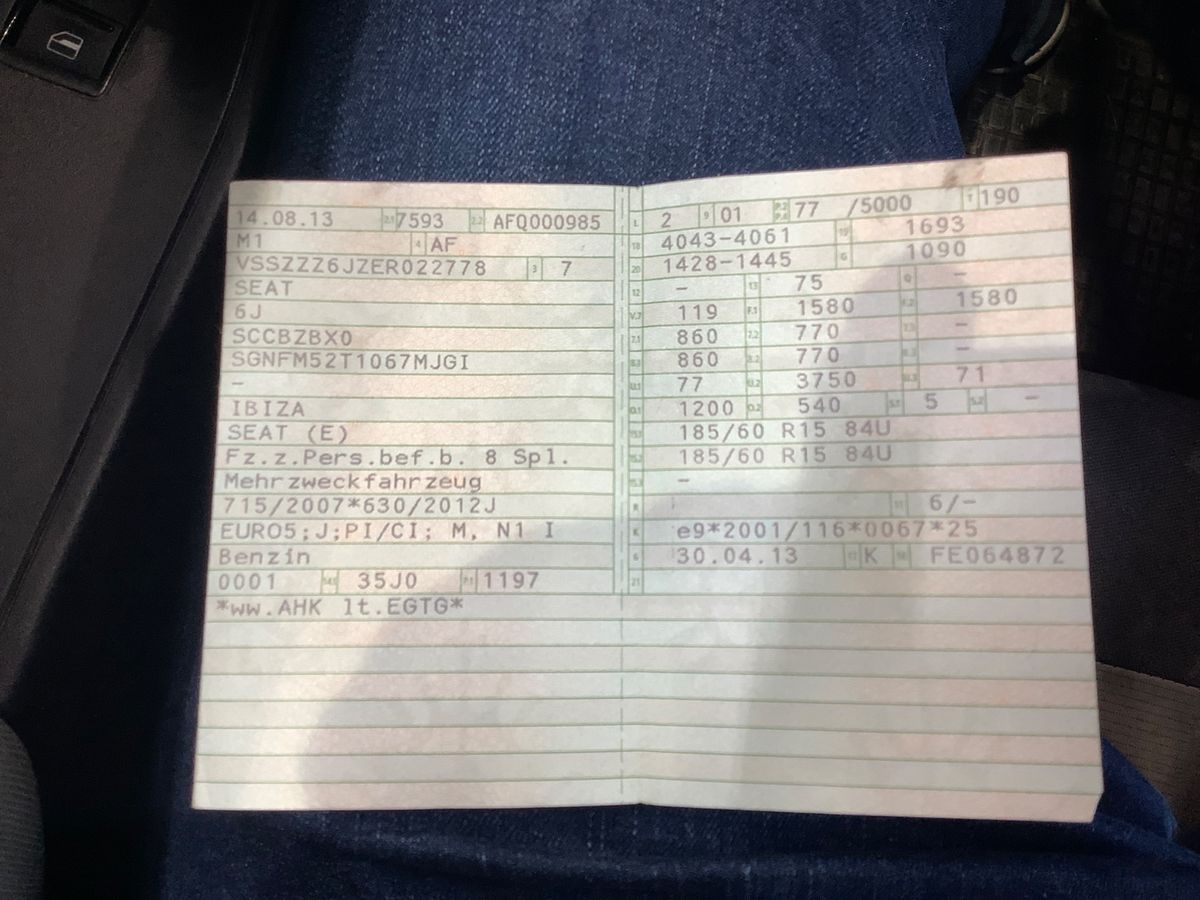 14.08.13 2.1 7593 2.2 AFQ000985
M1 4 AF
VSSZZZ6JZER022778 3 7
SEAT
6J
SCCBZBX0
SGNFM52T1067MJGI
–
IBIZA
SEAT (E)
Fz.z.Pers.bef.b. 8 Spl.
Mehrzweckfahrzeug
715/2007*630/2012J
EURO5;J;PI/CI; M, N1 I
Benzin
0001 14.1 35J0 P.1 1197
*ww.AHK lt.EGTG*
L 2 9 01 P.2 P.4 77 /5000 T 190
18 4043-4061 19 1693
20 1428-1445 G 1090
12 – 13 75 Q –
V.7 119 F.1 1580 F.2 1580
7.1 860 7.2 770 7.3 –
8.1 860 8.2 770 8.3 –
U.1 77 U.2 3750 U.3 71
O.1 1200 O.2 540 S.1 5 S.2 –
15.1 185/60 R15 84U
15.2 185/60 R15 84U
15.3 –
R 11 6/–
K e9*2001/116*0067*25
6 30.04.13 17 K 16 FE064872
21